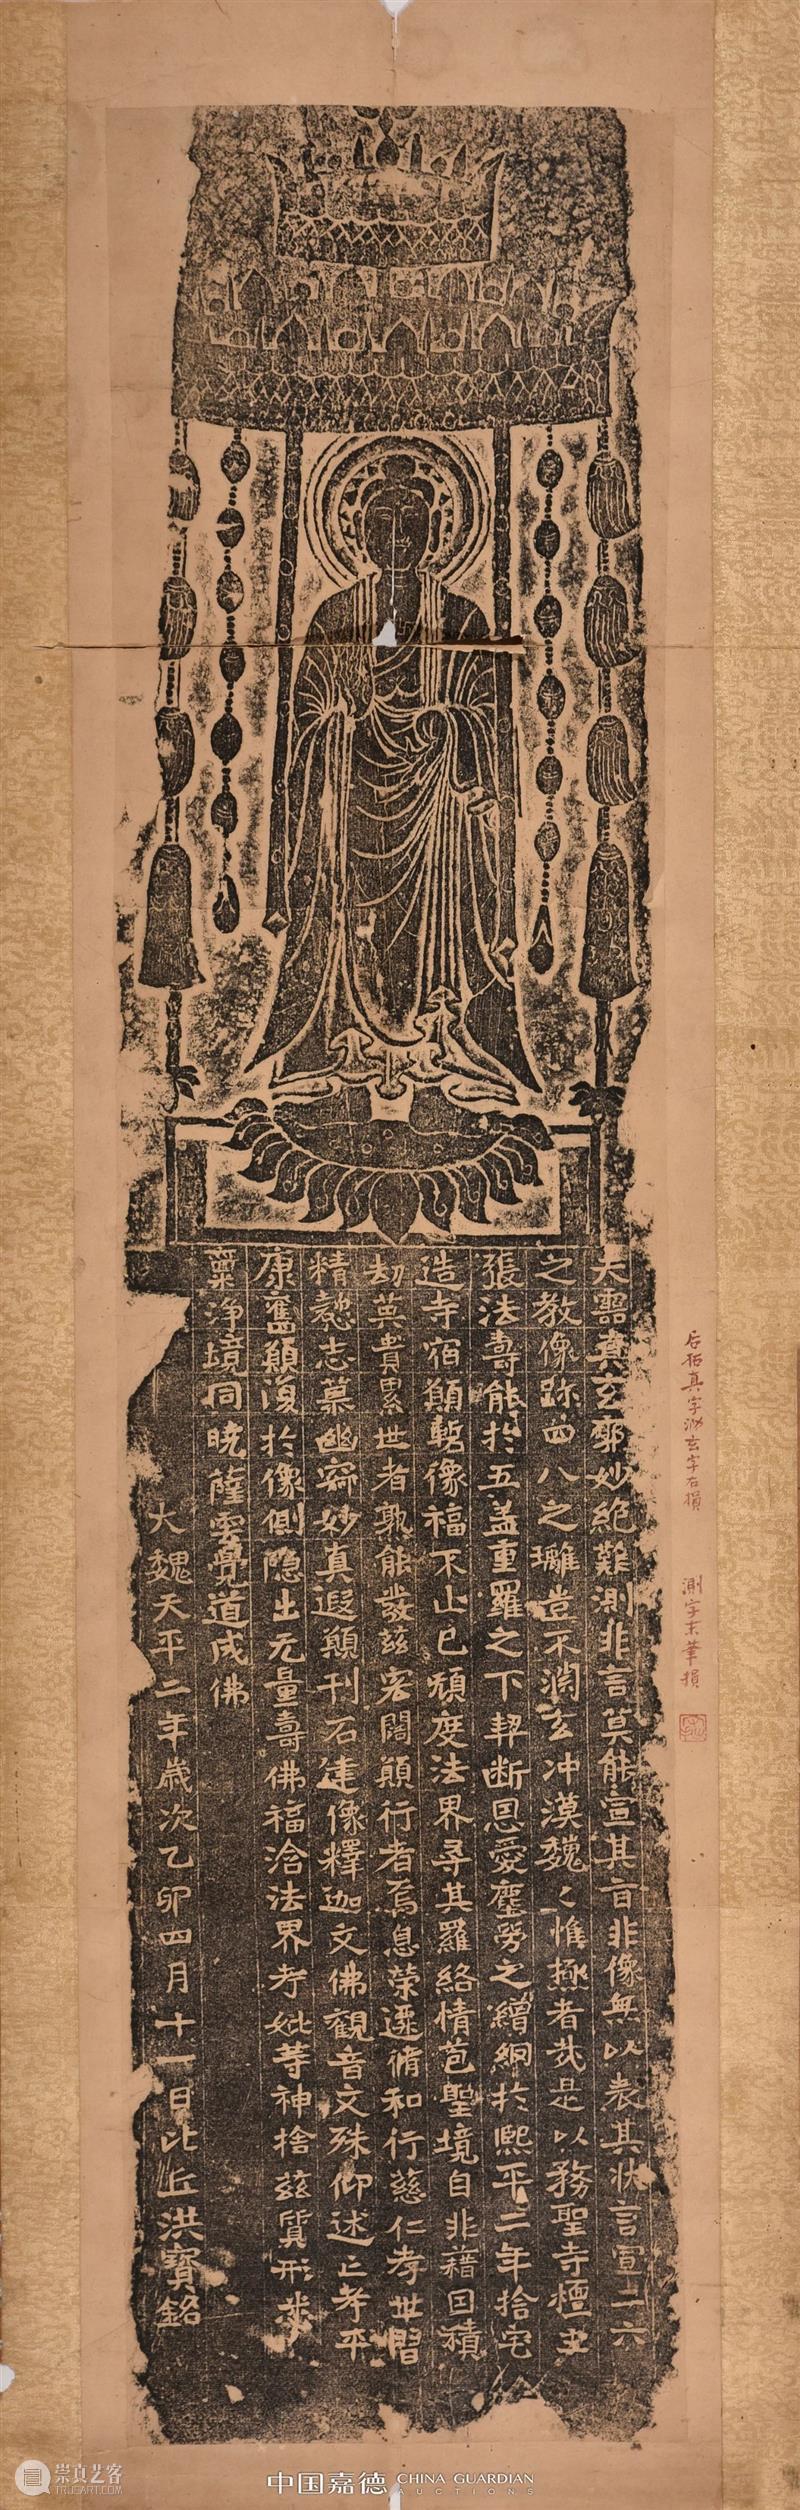 夫靈真玄廓妙絕難測非言莫能宣其旨非像無以表其狀言宣二六
之教像跡四八之璣豈不淵玄冲漠魏〻惟極者哉是以務聖寺檀主
張法壽能於五蓋重羅之下契斷恩愛塵勞之繒網於熙平二年捨宅
造寺宿願暫像福不止已頗度法界尋其羅絡情苞聖境自非藉因積
劫莫貴累世者孰能發茲宏闊願行者焉息榮遷脩和行慈仁孝世習
精懃志慕幽寂妙真遐願刊石建像釋迦文佛觀音文殊仰述亡考平
康舊願復於像側隱出无量壽佛福洽法界考妣等神捨茲質形悉
稟淨境同曉薩雲覺道成佛
大魏天平二年歲次乙卯四月十一日比丘洪寶銘
后拓真字泐玄字右損
測字末筆損
中国嘉德 CHINA GUARDIAN
AUCTIONS
崇真艺客
TRUEART.COM